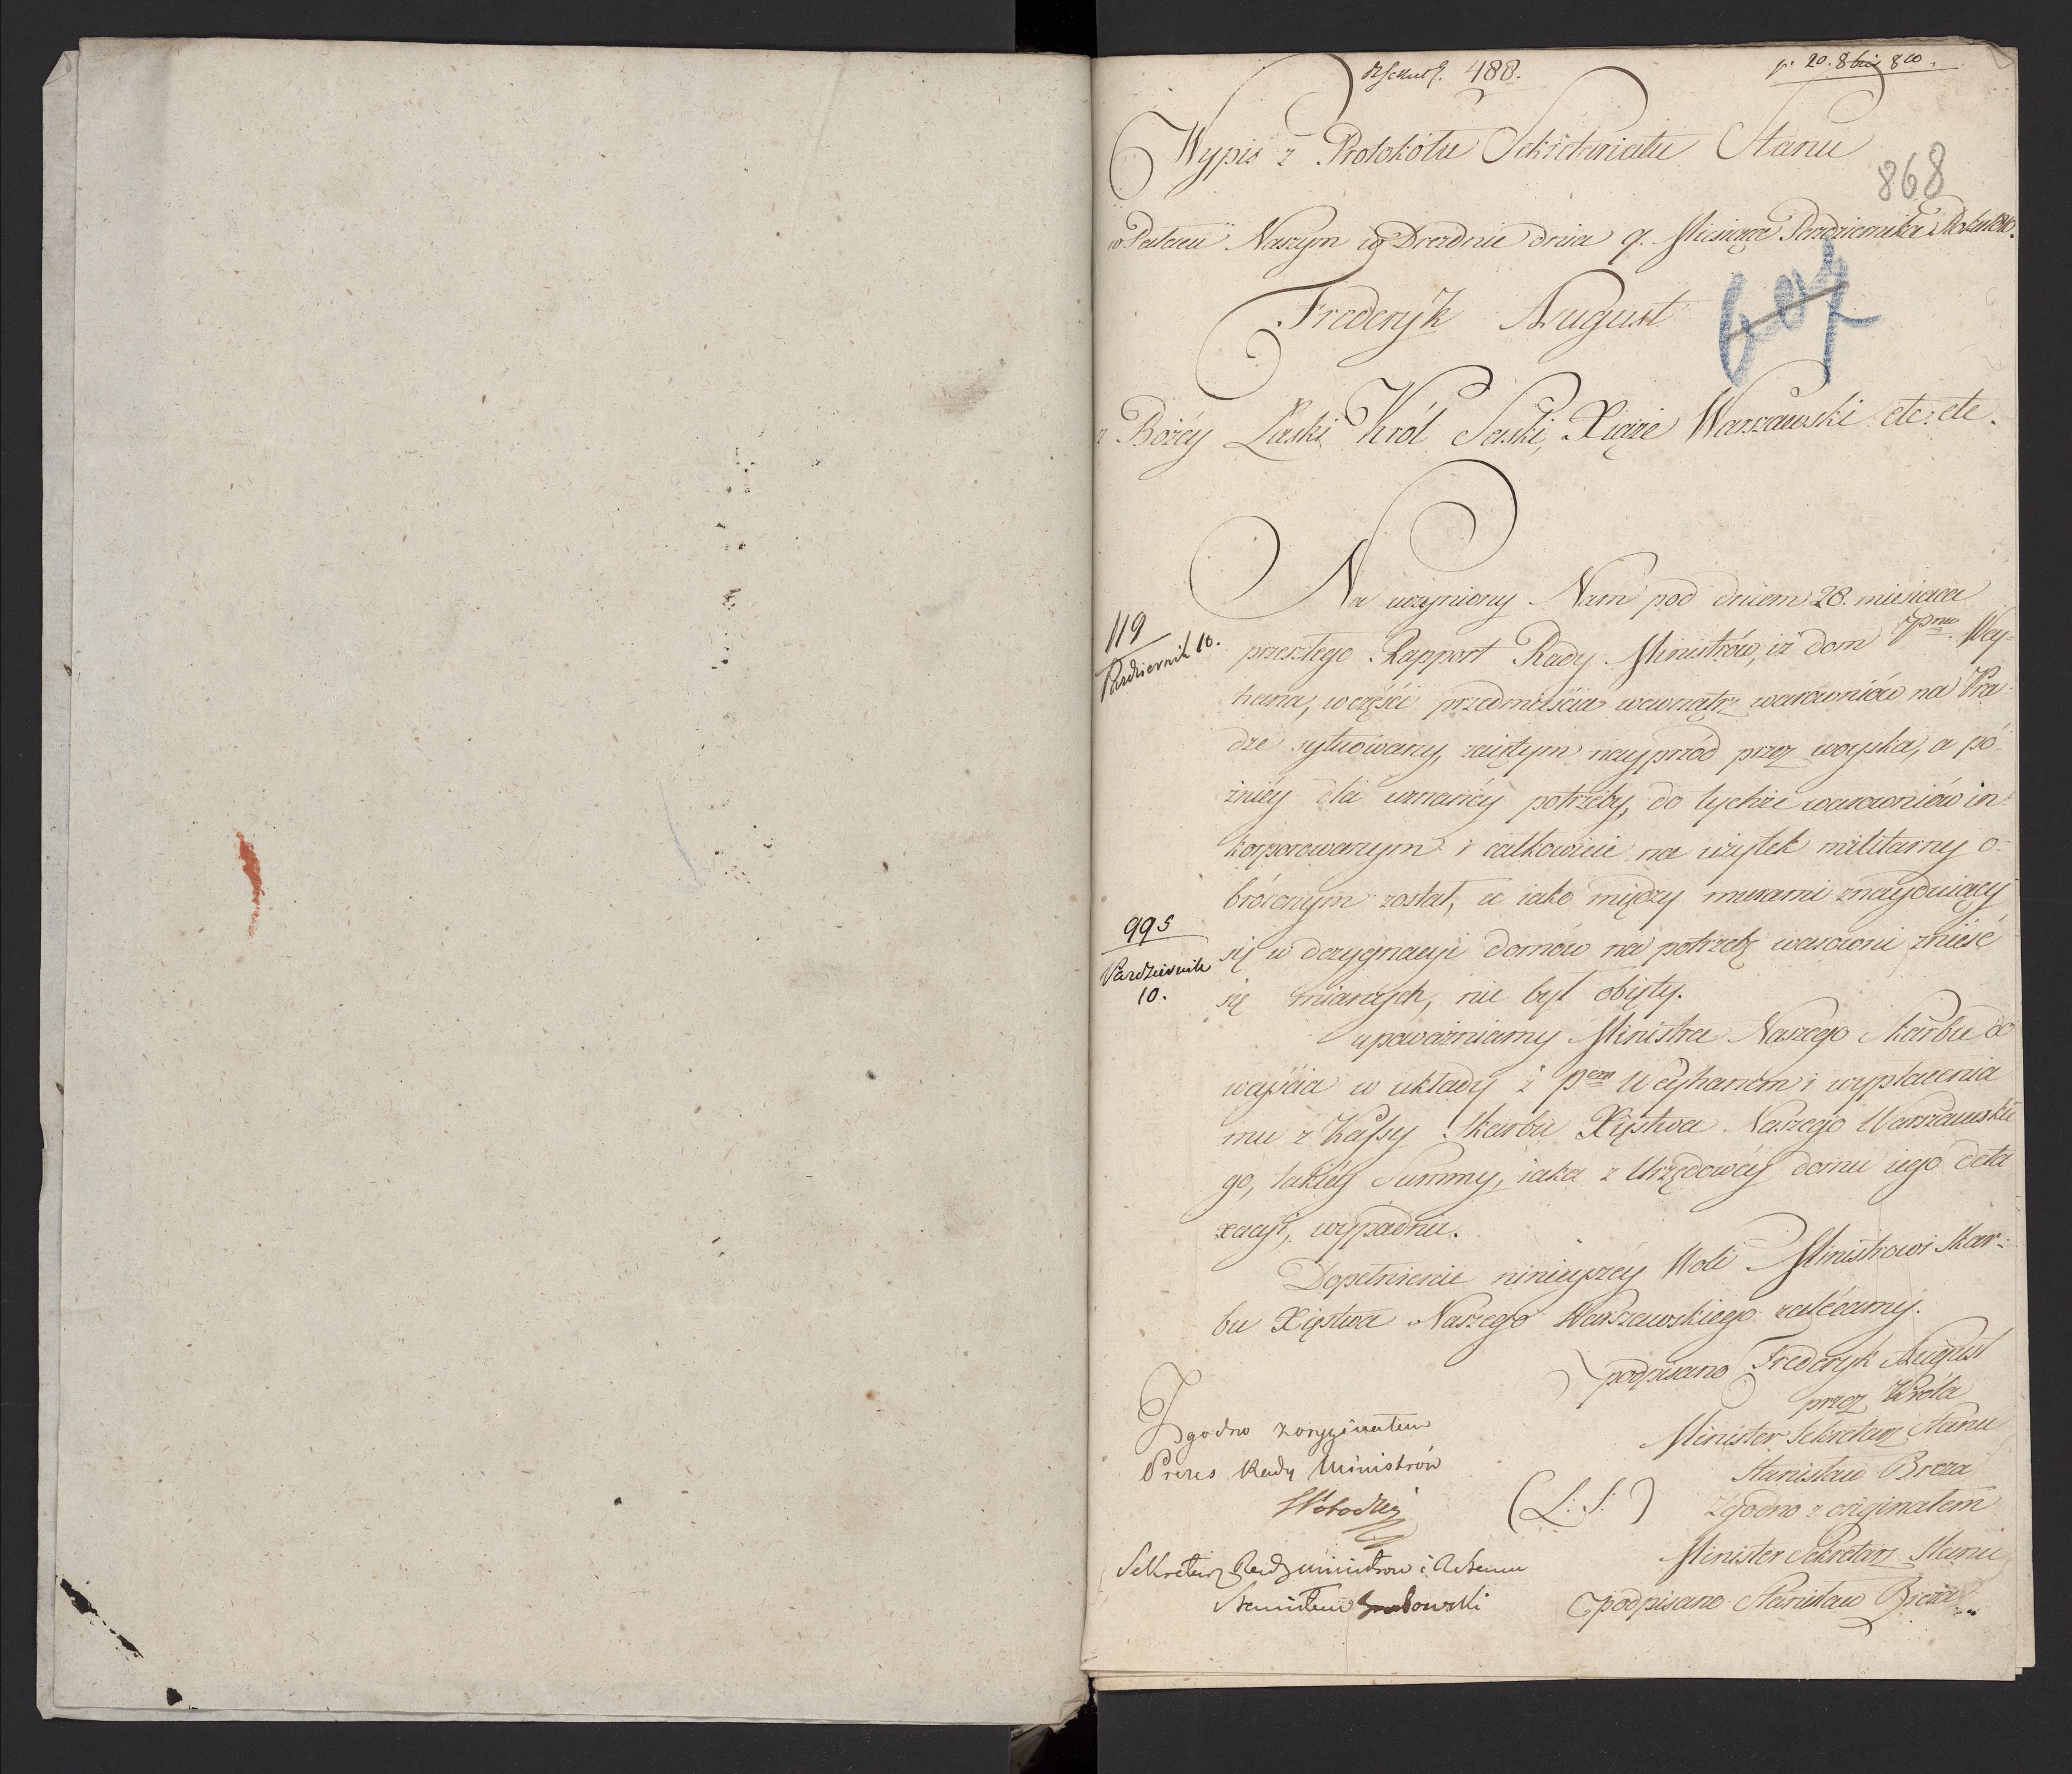 488.
pr. 20. 8bris 810.
Wypis z Protokółu Sekretariatu Stanu
868
w Pałacu Naszym w Dreznie dnia 9. Miesiąca Pazdziernika Roku 1810.
Frederyk August
z Bożéy Łaski Król Saski, Xiąże Warszawski etc: etc.
Na uczyniony Nam pod dniem 28. miesiąca
119
Pazdziernik 10.
przeszłego Rapport Rady Ministrów, iż dom Wey-
hana, w części przedmieścia wewnątrz warowniów na Pra-
dze sytuowany, zaiętym nayprzód przez woyska, a pó-
źniéy dla uznanéy potrzeby, do tychże warowniów in-
korporowanym i całkowicie na użytek militarny o-
bróconym został, a iako między murami znayduiący
995
Pazdziernik
10.
się w dezygnacyi domów na potrzebę warowni znieść
się mianych, nie był obięty.
upoważniamy Ministra Naszego Skarbu do
weyścia w układy z Pem Weyhanem i wypłacenia
mu z Kassy Skarbu Xięstwa Naszego Warszawskie
go, takiéy Summy, iaka z Urzędowéy domu iego deta
xacyi, wypadnie.
Dopełnienie ninieyszéy Woli Ministrowi Skar-
bu Xięstwa Naszego Warszawskiego zalécamy.
podpisano Frederyk August
przez Króla
Minister Sekretarz Stanu
Stanisław Breza
Zgodno z oryginałem
Prezes Rady Ministrów
(L: S:)
Zgodno z originałem
Minister Sekretarz Stanu
podpisano Stanisław Breza
Sekretarz Rady Ministrów i R Stanu
Stanisław Grabowski